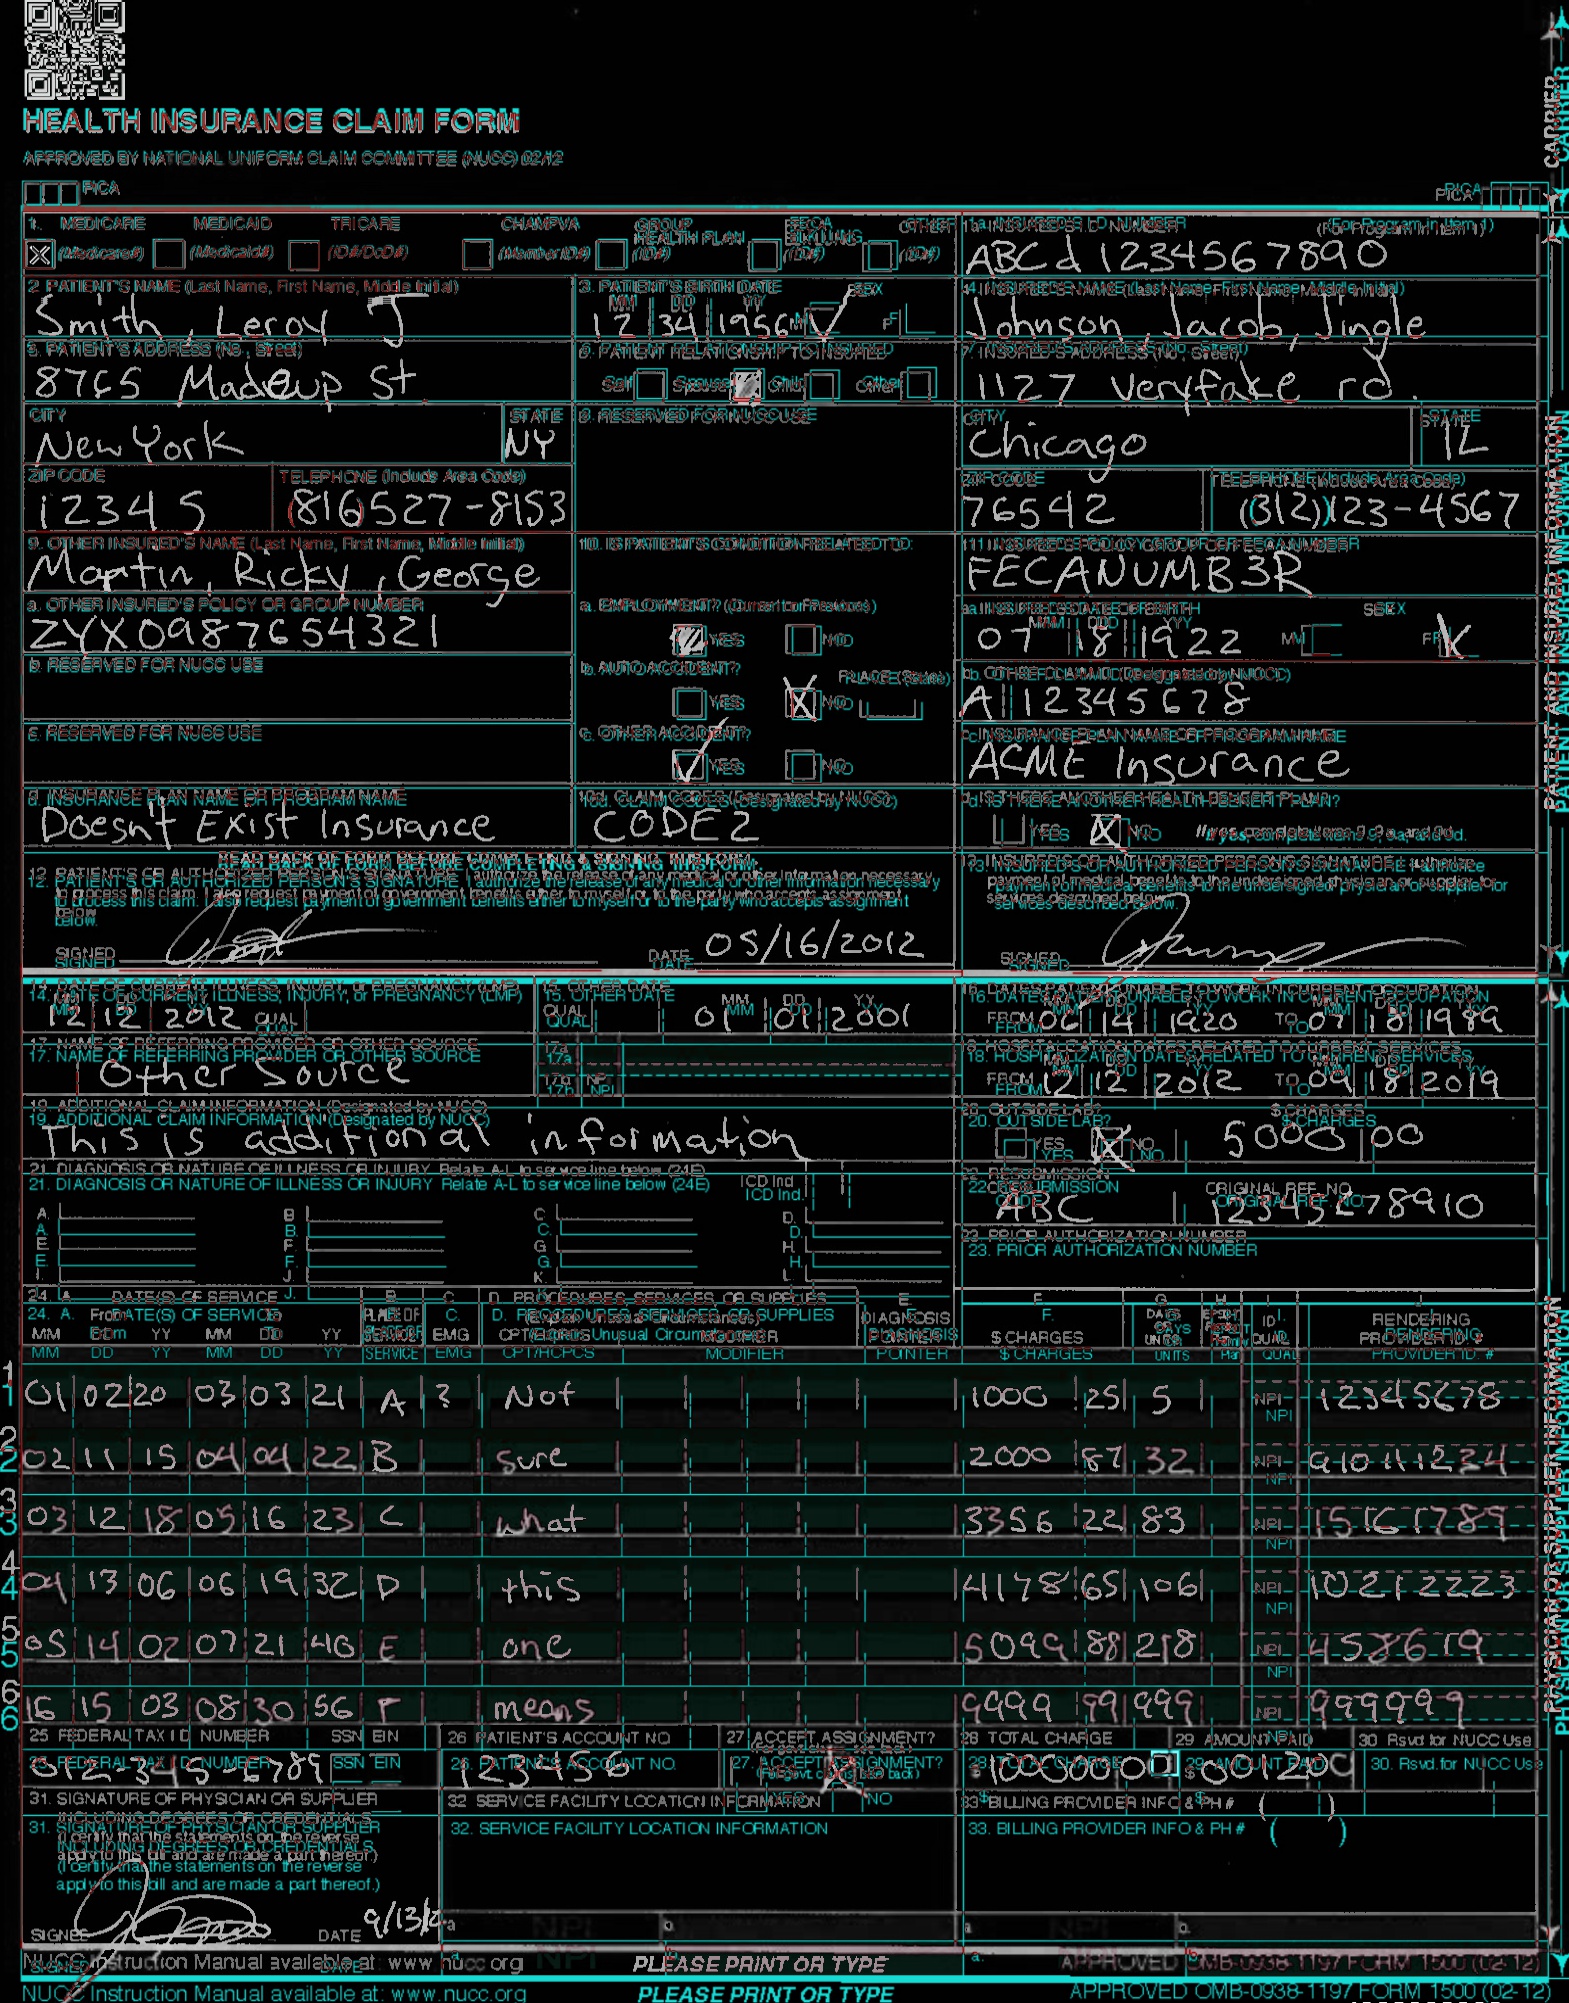 HEALTH INSURANCE CLAIM FORM
APPROVED BY NATIONAL UNIFORM CLAIM COMMITTEE (NUCC) 02/12
PICA PICA
CARRIER
1. MEDICARE MEDICAID TRICARE CHAMPVA GROUP HEALTH PLAN FECA BLKLUNG OTHER
(Medicare#) (Medicaid#) (ID#/DoD#) (Member ID#) (ID#) (ID#) (ID#)
1a. INSURED'S I.D. NUMBER (For Program in Item 1)
ABCd1234567890
2. PATIENT'S NAME (Last Name, First Name, Middle Initial)
Smith, Leroy J
3. PATIENT'S BIRTH DATE SEX
MM DD YY
12 34 1956 M F
4. INSURED'S NAME (Last Name, First Name, Middle Initial)
Johnson, Jacob, Jingle
5. PATIENT'S ADDRESS (No., Street)
8765 Madeup St
6. PATIENT RELATIONSHIP TO INSURED
Self Spouse Child Other
7. INSURED'S ADDRESS (No., Street)
1127 veryfake rd.
CITY STATE
New York NY
8. RESERVED FOR NUCC USE
CITY STATE
Chicago IL
ZIP CODE TELEPHONE (Include Area Code)
12345 (816)527-8153
ZIP CODE TELEPHONE (Include Area Code)
76542 (312)123-4567
9. OTHER INSURED'S NAME (Last Name, First Name, Middle Initial)
Martin, Ricky, George
10. IS PATIENT'S CONDITION RELATED TO:
11. INSURED'S POLICY GROUP OR FECA NUMBER
FECANUMB3R
a. OTHER INSURED'S POLICY OR GROUP NUMBER
ZYX0987654321
a. EMPLOYMENT? (Current or Previous)
YES NO
a. INSURED'S DATE OF BIRTH SEX
MM DD YY
07 18 1922 M F
b. RESERVED FOR NUCC USE
b. AUTO ACCIDENT? PLACE (State)
YES NO
b. OTHER CLAIM ID (Designated by NUCC)
A 12345678
c. RESERVED FOR NUCC USE
c. OTHER ACCIDENT?
YES NO
c. INSURANCE PLAN NAME OR PROGRAM NAME
ACME Insurance
d. INSURANCE PLAN NAME OR PROGRAM NAME
Doesn't Exist Insurance
10d. CLAIM CODES (Designated by NUCC)
CODE2
d. IS THERE ANOTHER HEALTH BENEFIT PLAN?
YES NO If yes, complete items 9, 9a, and 9d.
READ BACK OF FORM BEFORE COMPLETING & SIGNING THIS FORM.
12. PATIENT'S OR AUTHORIZED PERSON'S SIGNATURE I authorize the release of any medical or other information necessary
to process this claim. I also request payment of government benefits either to myself or to the party who accepts assignment
below.
SIGNED DATE 05/16/2012
13. INSURED'S OR AUTHORIZED PERSON'S SIGNATURE I authorize
payment of medical benefits to the undersigned physician or supplier for
services described below.
SIGNED
PATIENT AND INSURED INFORMATION
14. DATE OF CURRENT ILLNESS, INJURY, or PREGNANCY (LMP)
MM DD YY
12 12 2012 QUAL.
15. OTHER DATE
QUAL. MM DD YY
01 01 2001
16. DATES PATIENT UNABLE TO WORK IN CURRENT OCCUPATION
MM DD YY MM DD YY
FROM 06 14 1920 TO 07 18 1989
17. NAME OF REFERRING PROVIDER OR OTHER SOURCE
Other Source
17a.
17b. NPI
18. HOSPITALIZATION DATES RELATED TO CURRENT SERVICES
MM DD YY MM DD YY
FROM 12 12 2012 TO 09 18 2019
19. ADDITIONAL CLAIM INFORMATION (Designated by NUCC)
This is additional information
20. OUTSIDE LAB? $ CHARGES
YES NO 5000 00
21. DIAGNOSIS OR NATURE OF ILLNESS OR INJURY Relate A-L to service line below (24E) ICD Ind.
A. B. C. D.
E. F. G. H.
I. J. K. L.
22. RESUBMISSION CODE ORIGINAL REF. NO.
ABC 12345678910
23. PRIOR AUTHORIZATION NUMBER
24. A. DATE(S) OF SERVICE B. C. D. PROCEDURES, SERVICES, OR SUPPLIES E. F. G. H. I. J.
From To PLACE OF SERVICE EMG (Explain Unusual Circumstances) DIAGNOSIS POINTER $ CHARGES DAYS OR UNITS ID. QUAL. RENDERING PROVIDER ID. #
MM DD YY MM DD YY CPT/HCPCS MODIFIER
1 01 02 20 03 03 21 A ? Not 1000 25 5 NPI 12345678
2 02 11 15 04 04 22 B sure 2000 87 32 NPI 910111234
3 03 12 18 05 16 23 C what 3356 22 83 NPI 15161789
4 04 13 06 06 19 32 D this 4178 65 106 NPI 10212223
5 05 14 02 07 21 40 E one 5099 88 218 NPI 4588619
6 16 15 03 08 30 56 F means 9999 99 999 NPI 999999
25. FEDERAL TAX I.D. NUMBER SSN EIN
26. PATIENT'S ACCOUNT NO.
123456
27. ACCEPT ASSIGNMENT?
(For govt. claims, see back)
YES NO
28. TOTAL CHARGE
29. AMOUNT PAID
30. Rsvd for NUCC Use
31. SIGNATURE OF PHYSICIAN OR SUPPLIER
INCLUDING DEGREES OR CREDENTIALS
(I certify that the statements on the reverse
apply to this bill and are made a part thereof.)
SIGNED DATE 9/13/2
32. SERVICE FACILITY LOCATION INFORMATION
a. NPI b.
33. BILLING PROVIDER INFO & PH # ( )
a. NPI b.
PHYSICIAN OR SUPPLIER INFORMATION
NUCC Instruction Manual available at: www.nucc.org PLEASE PRINT OR TYPE APPROVED OMB-0938-1197 FORM 1500 (02-12)